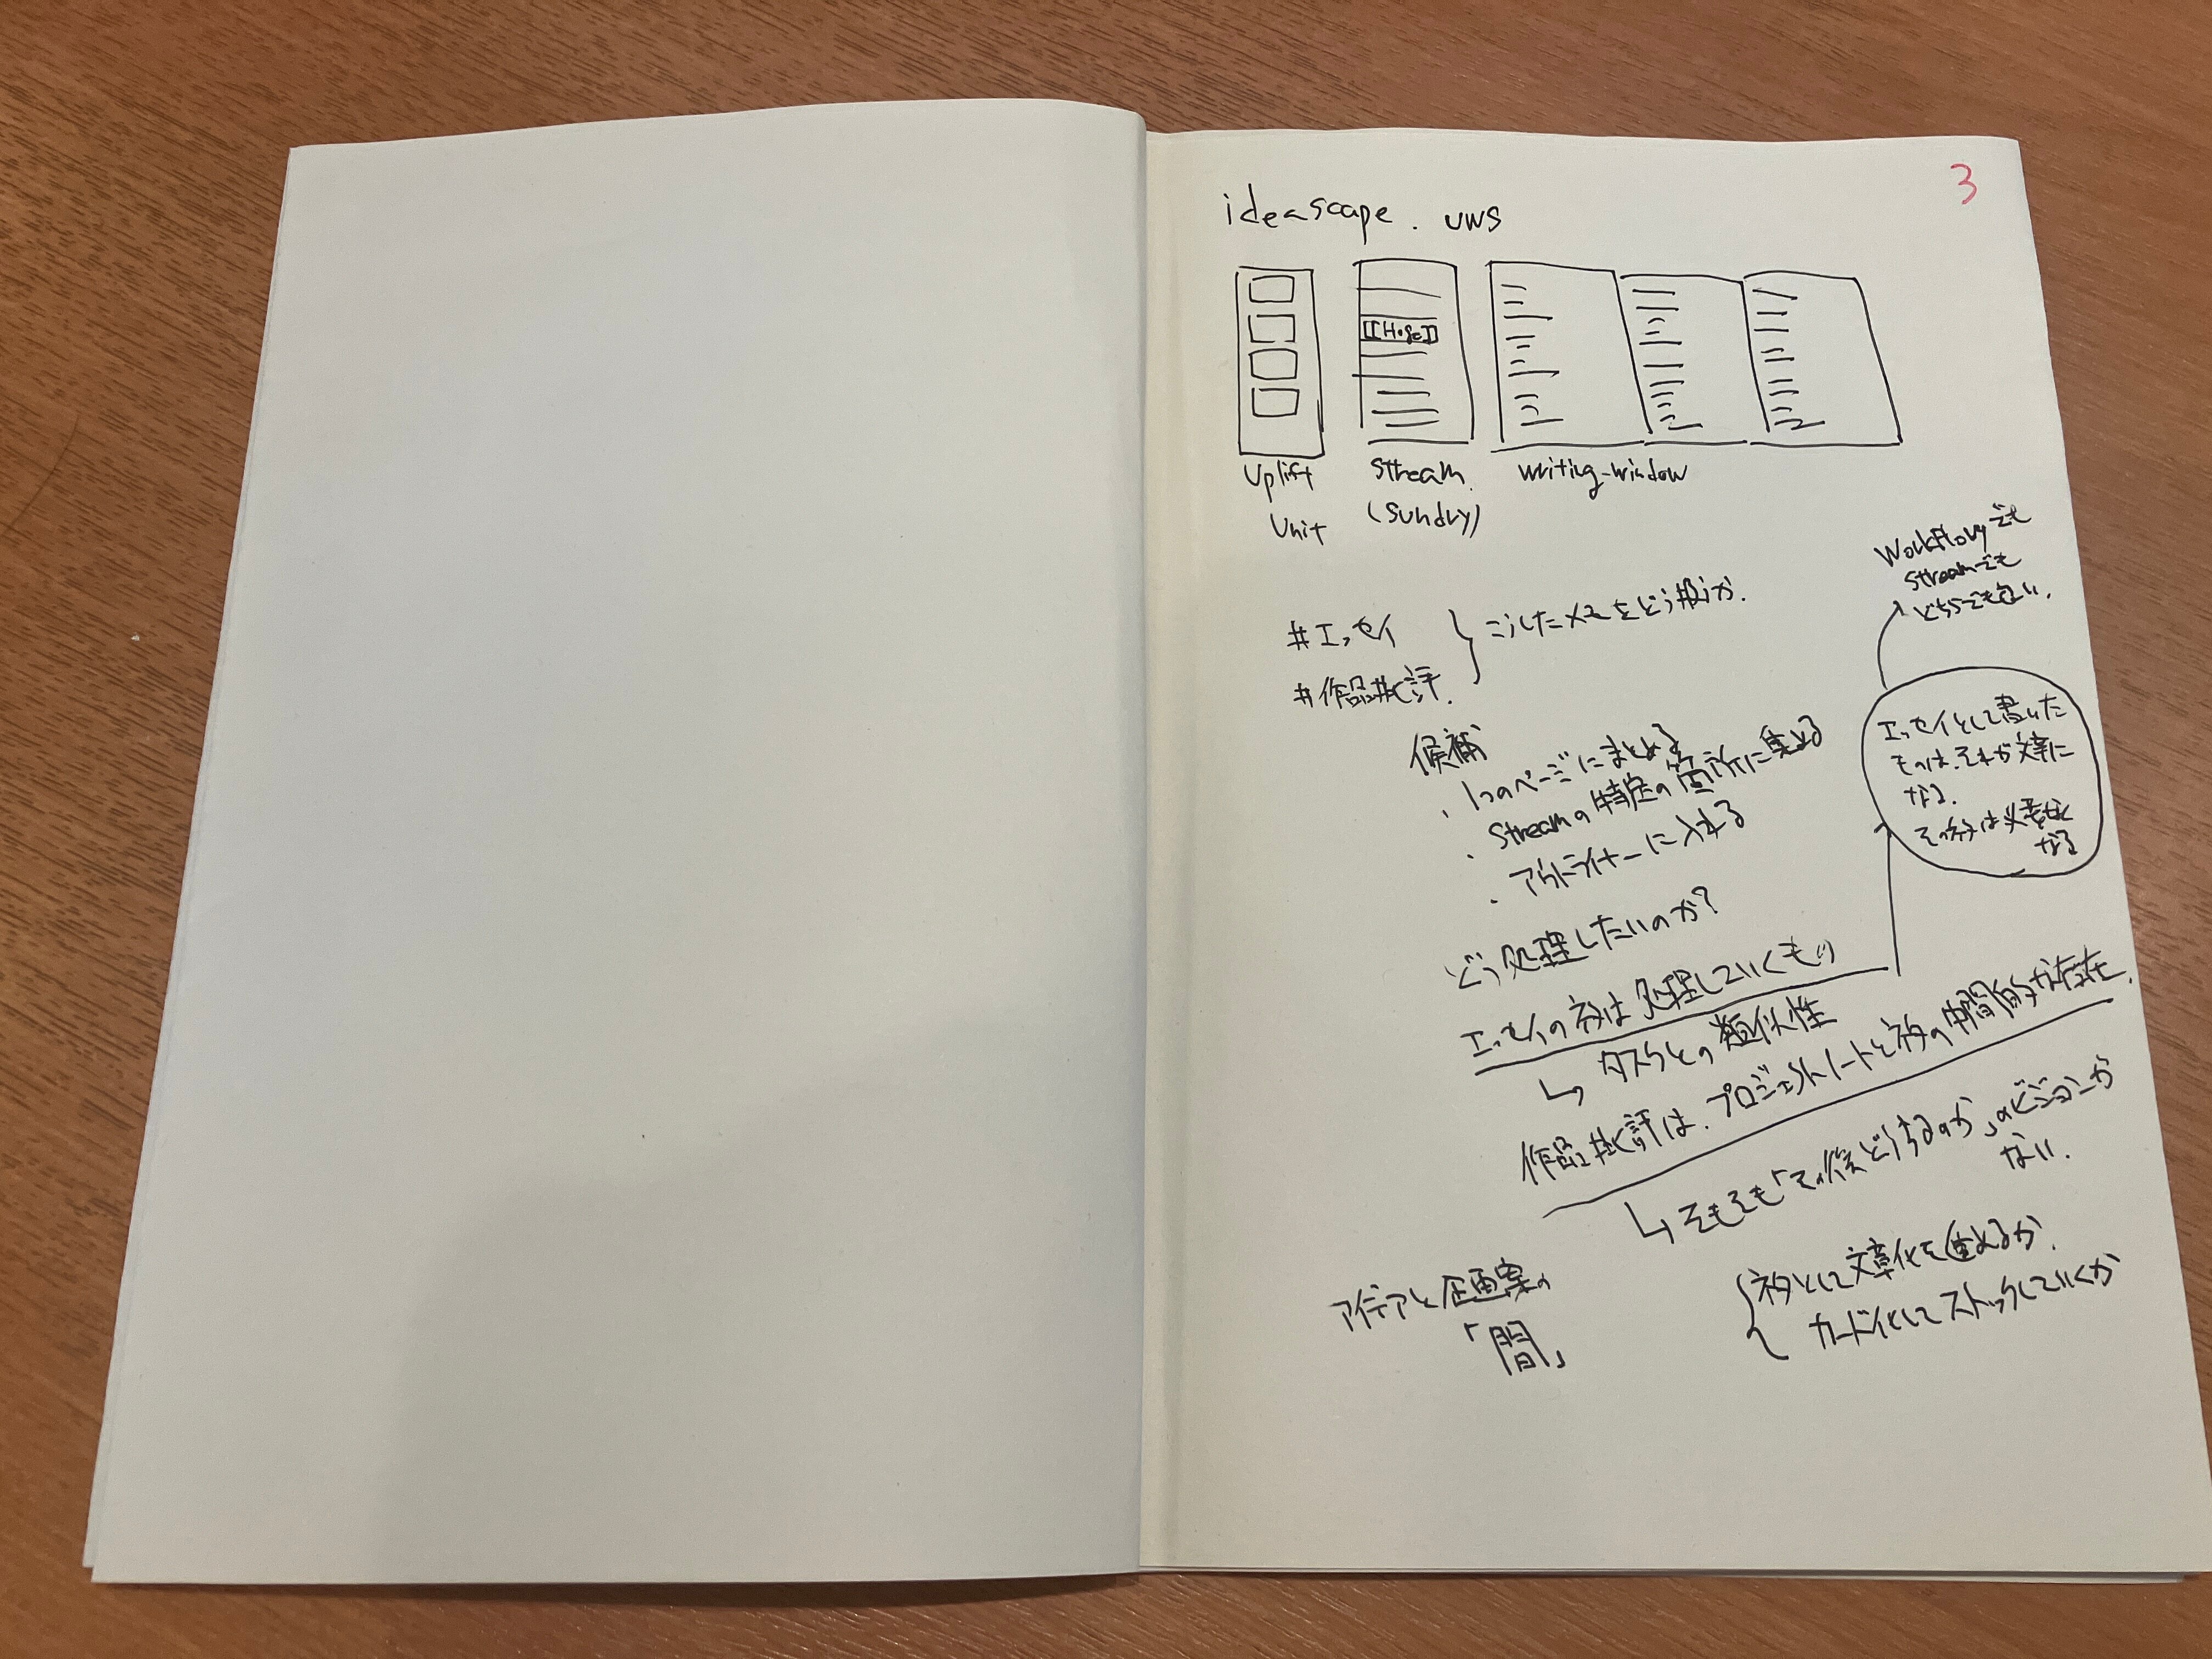 3
ideascape. UWS
[[Hoge]]
Uplift
Unit
Stream
(Sundry)
writing-window
Workflowyでも
Streamでも
どちらでも良い.
#エッセイ
#作品批評.
こうしたメモをどう扱うか.
候補
・1つのページにまとめる
・Streamの特定の箇所に集める
・アウトライナーに入れる
エッセイとして書いた
ものは、それが文章に
なる.
その後は必要なく
なる
どう処理したいのか?
エッセイのネタは処理していくもの
↳ タスクとの類似性
作品批評は、プロジェクトノートとネタの中間的な存在.
↳ そもそも「その後どうするのか」のビジョンが
ない.
ネタとして文章化を進めるか.
カード化してストックしていくか
アイデアと企画案の
「間」